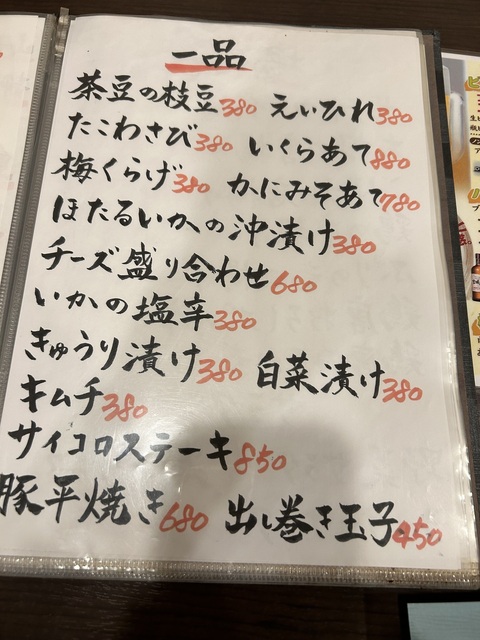 一品
茶豆の枝豆380 えいひれ380
たこわさび380 いくらあて880
梅くらげ380 かにみそあて780
ほたるいかの沖漬け380
チーズ盛り合わせ680
いかの塩辛380
きゅうり漬け380 白菜漬け380
キムチ380
サイコロステーキ850
豚平焼き680 出し巻き玉子450